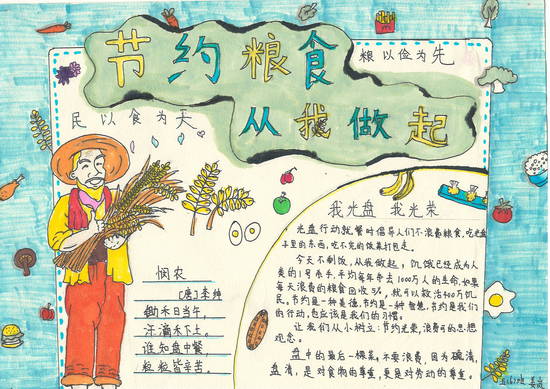 节约粮食
从我做起
粮以俭为先
民以食为天
悯农
[唐]李绅
锄禾日当午，
汗滴禾下土。
谁知盘中餐，
粒粒皆辛苦。
我光盘 我光荣
光盘行动就餐时倡导人们不浪费粮食，吃光盘
子里的东西，吃不完的饭菜打包走。
今天不剩饭，从我做起，饥饿已经成为人
类的1号杀手，平均每年夺去1000万人的生命，如果
每天浪费的粮食回收5%，就可以救活400万饥
民。节约是一种美德，节约是一种智慧，节约是我们
的行动，也应该是我们的习惯。
让我们从小树立：节约光荣，浪费可耻思想
观念。
盘中的最后一棵菜，不要浪费，因为碗清，
盘清，是对食物的尊重，更是对劳动的尊重。